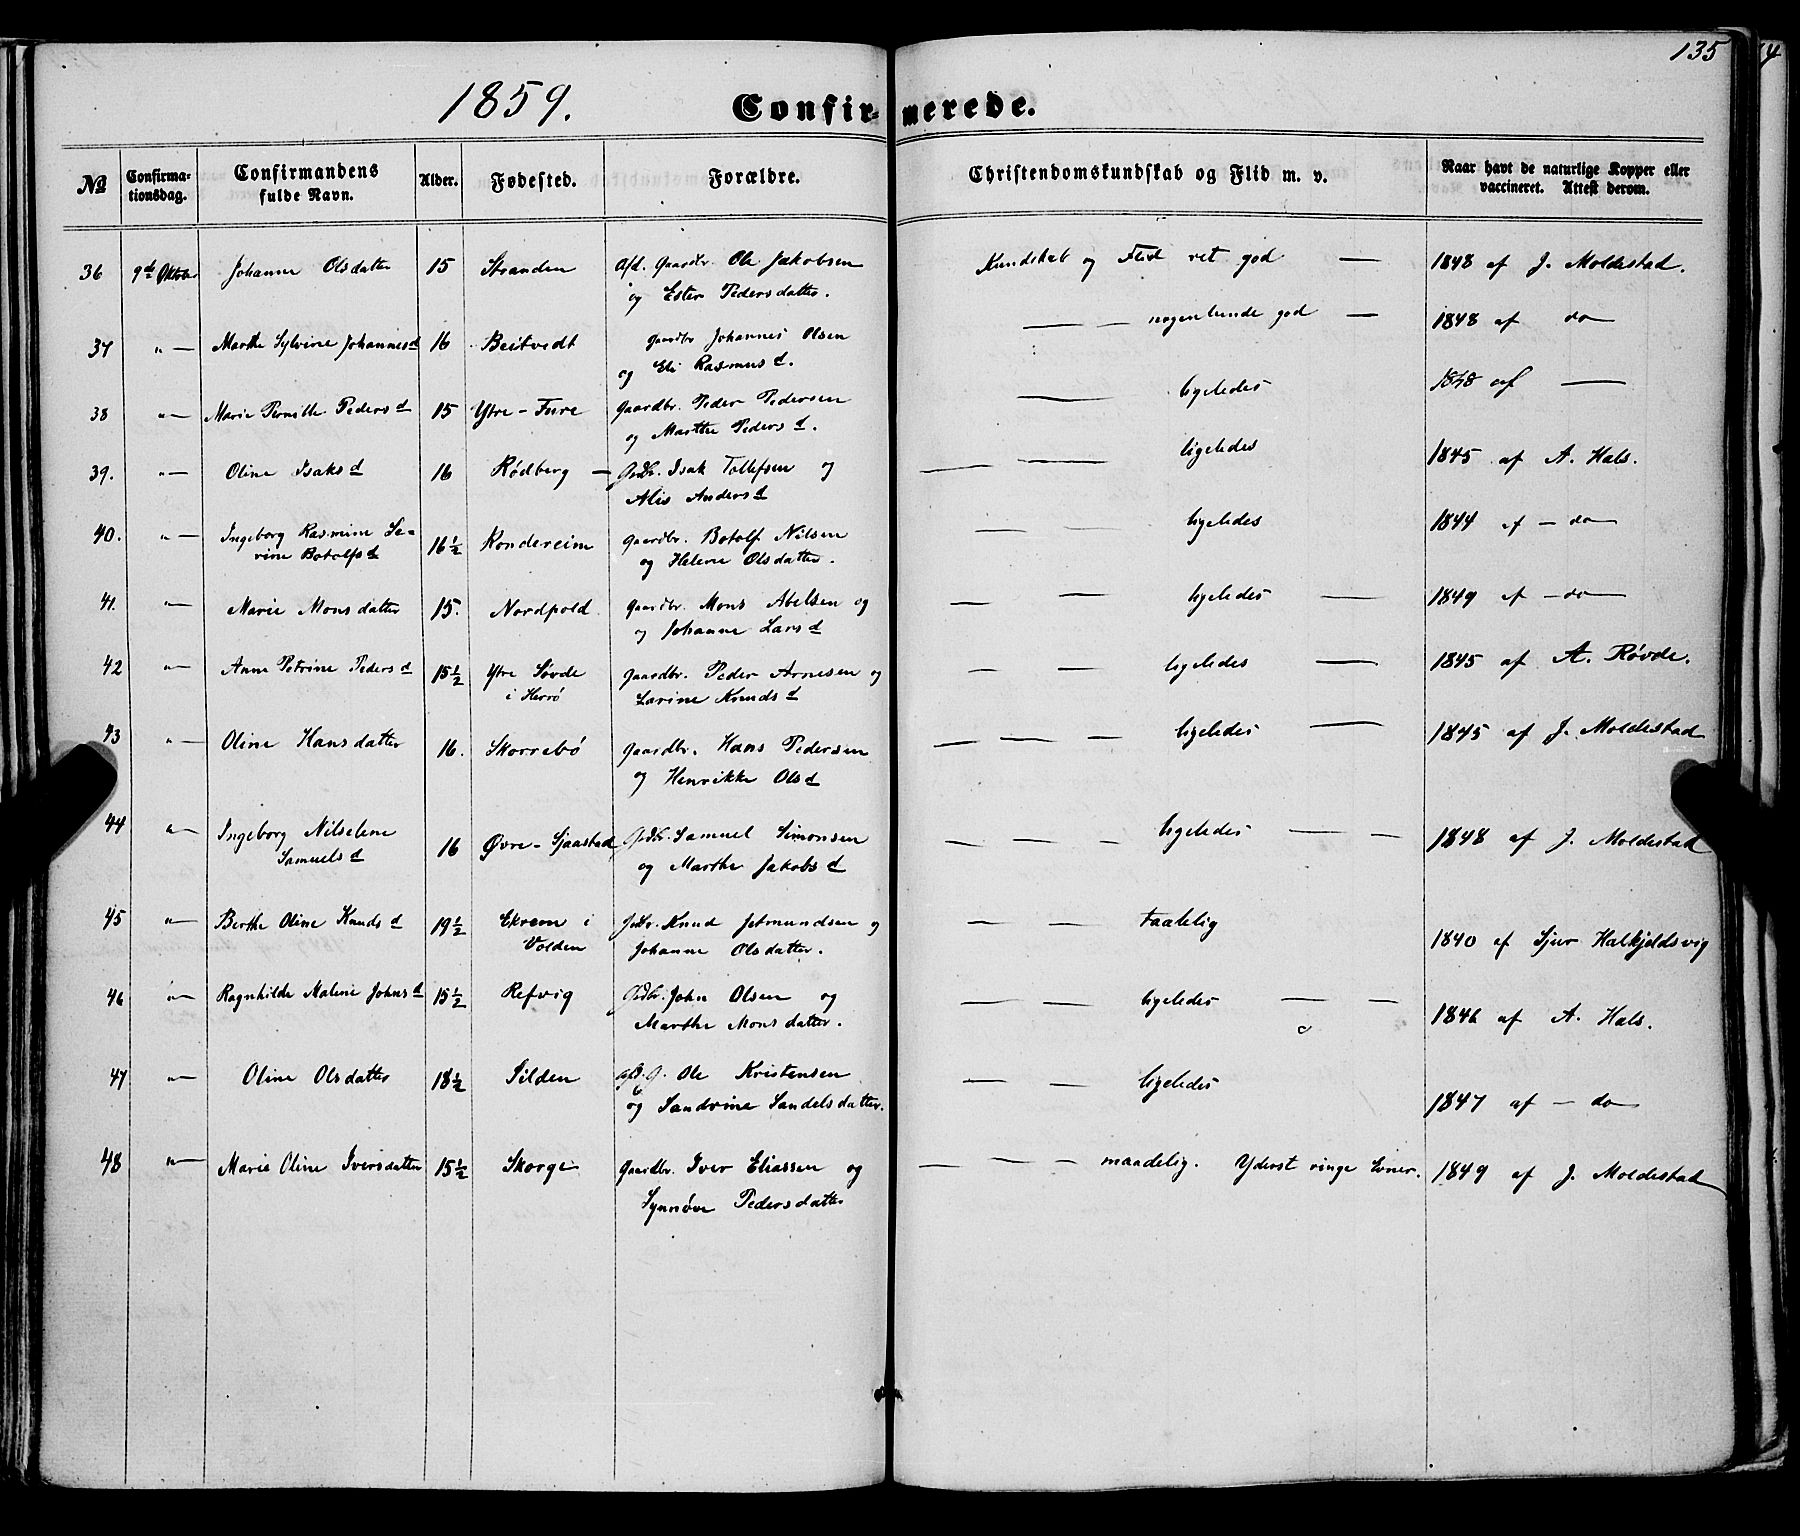 135
1859. Confirmerede.
No Confirmationsdag. Confirmandens fulde Navn. Alder. Fødested. Forældre. Christendomskundskab og Flid m. v. Naar havt de naturlige Kopper eller vaccineret. Attest derom.
36 9de Oktober Johanne Olsdatter 15 Stranden Afd. Gaardbr. Ole Jakobsen Kundskab og Flid ret god — 1848 af J. Moldestad.
og Ester Pedersdatter.
37 " — Marthe Sylvine Johannesd 16 Beitvedt gaardbr Johannes Olsen — — nogenlunde god — 1848 af do
og Eli Rasmusd.
38 " — Marie Pernille Pedersd 15 Ytre-Fure Gaardbr. Peder Pedersen — ligeledes 1848 af —
og Marthe Pedersd.
39. " — Oline Isaksd 16 Rødberg — Grdbr. Isak Tollefsen og — — ligeledes 1845 af A. Hals.
Alis Andersd
40. " — Ingeborg Rasmine Se- 16½ Rondereim gaardbr. Botolf Nilsen — — ligeledes 1844 af — do
rine Botolfsd og Helene Olsdatter.
41. " — Marie Monsdatter 15. Nordpold gaardbr. Mons Abelsen og — — ligeledes — 1849 af — do
og Johanne Larsd
42 " — Anne Petrine Pedersd 15½ Ytre Søvde gaardbr. Peder Arnesen og — — ligeledes — 1845 af A. Røvde.
i Herrø Larine Knudsd
43 " — Oline Hansdatter 16. Skorrebø gaardbr. Hans Pedersen — — — ligeledes — 1845 af J. Moldestad
og Henrikke Olsd
44 " — Ingeborg Nilseline 16 Øvre-Sjaastad Grdbr. Samuel Simonsen — — — ligeledes — — 1848 af J. Moldestad
Samuelsd og Marthe Jakobsd
45 " — Berthe Oline Knudsd 19½ Ekrem i Grdbr. Knud Jetmundsen og — — taalelig 1840 af Sjur Halkjeldsvig
Volden Johanne Olsdatter.
46 " — Ragnhilde Malene Johnsd 15½ Refvig Grdbr. John Olsen og — — ligeledes — — 1846 af A. Hals.
Marthe Monsdatter.
47 " — Oline Olsdatter 18½ Silden Afd. G. Ole Kristensen — — ligeledes 1847 af — do
og Sandrine Sandelsdatter.
48 " — Marie Oline Iversdatter 15½ Skorge Gaardbr. Iver Eliassen og — — — maadelig. Yderst ringe Evner. 1849 af J. Moldestad
Synnøve Pedersdatter